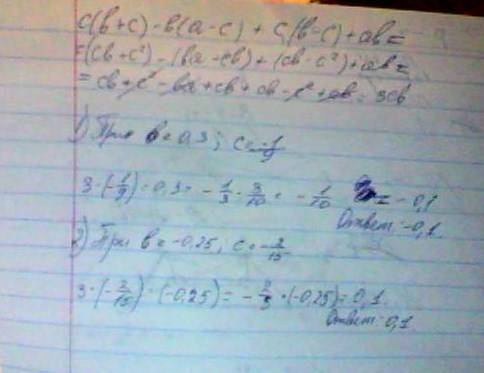 c(b+c)-b(a-c)+c(b-c)+ab=
=(cb+c²)-(ba-cb)+(cb-c²)+ab=
=cb+c²-ba+cb+cb-c²+ab=3cb
1) При b=0,3; c=-1/9
3·(-1/9)·0,3=-1/3·3/10=-1/10=-0,1
Ответ:-0,1.
2) При b=-0,25; c=-2/15
3·(-2/15)·(-0,25)=-2/5·(-0,25)=0,1
Ответ:0,1